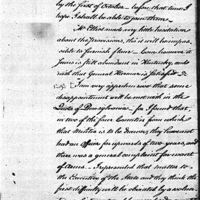 by the first of October — before that time I
hope I shall be able to join them —
Mr Elliot made very little hesitation
about the provisions, this is well he
to furnish flour — Corn however it
seems is full abundant in Kentucky, and
with that General Harmar is satisfied
I am very apprehensive that some
disappointment will be met with in the
Quota of Pensylvania — for I found that
in two of the four Counties from which
that Militia is to be drawn, they have not
had an Officer for upwards of two years, and
there was a general complaint for want
of Arms — I represented that matter to
the Executive of the State and they think the
first difficulty will be obviated by a